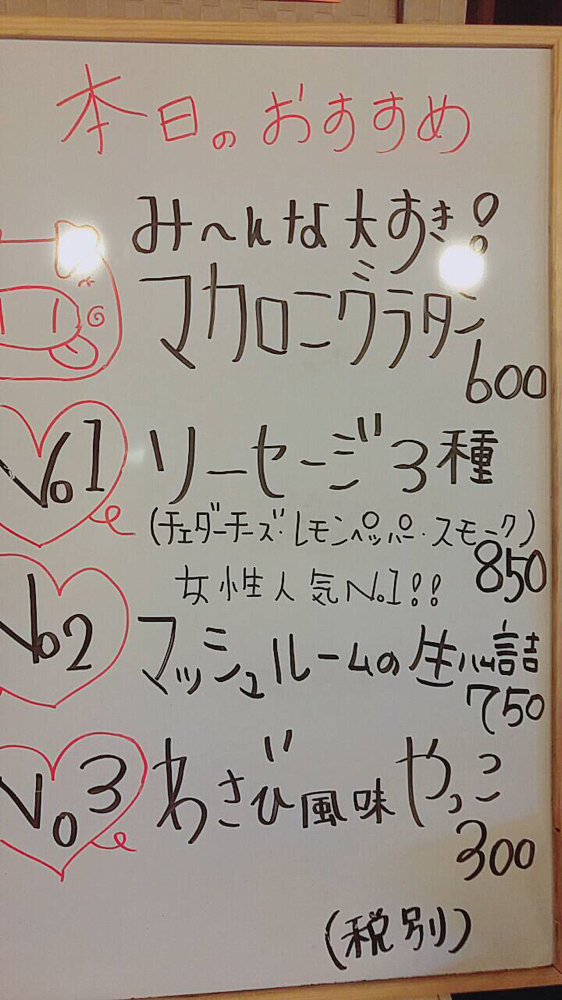 本日のおすすめ
み〜んな大すき!
マカロニグラタン
600
No1 ソーセージ3種
(チェダーチーズ・レモンペッパー・スモーク)
850
女性人気No.1!!
No2 マッシュルームの生ハム詰
750
No3 わさび風味やっこ
300
(税別)